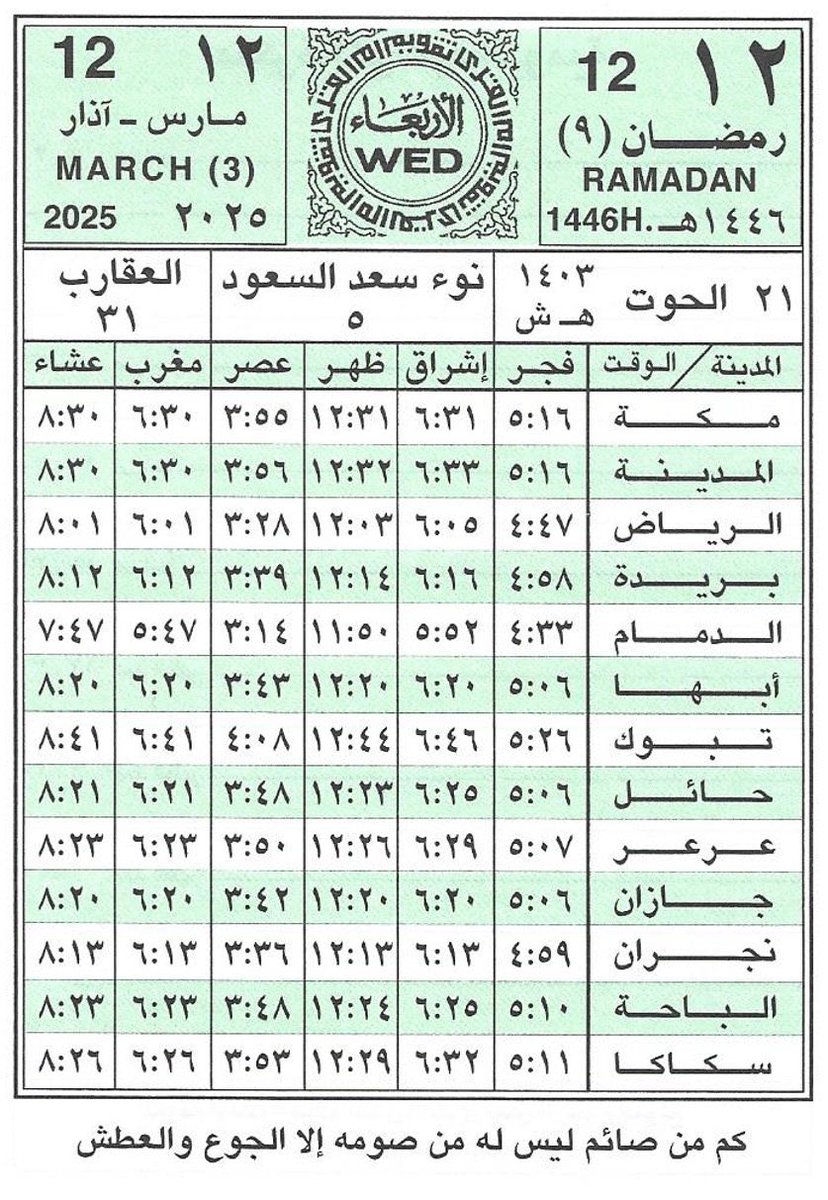 ١٢ 12
رمضان (٩)
RAMADAN
1446H. ١٤٤٦هـ
الأربعاء
WED
12 ١٢
مارس - آذار
MARCH (3)
2025 ٢٠٢٥
٢١ الحوت ١٤٠٣ هـ ش
نوء سعد السعود ٥
العقارب ٣١
المدينة / الوقت فجر إشراق ظهر عصر مغرب عشاء
مكة ٥:١٦ ٦:٣١ ١٢:٣١ ٣:٥٥ ٦:٣٠ ٨:٣٠
المدينة ٥:١٦ ٦:٣٣ ١٢:٣٢ ٣:٥٦ ٦:٣٠ ٨:٣٠
الرياض ٤:٤٧ ٦:٠٥ ١٢:٠٣ ٣:٢٨ ٦:٠١ ٨:٠١
بريدة ٤:٥٨ ٦:١٦ ١٢:١٤ ٣:٣٩ ٦:١٢ ٨:١٢
الدمام ٤:٣٣ ٥:٥٢ ١١:٥٠ ٣:١٤ ٥:٤٧ ٧:٤٧
أبها ٥:٠٦ ٦:٢٠ ١٢:٢٠ ٣:٤٣ ٦:٢٠ ٨:٢٠
تبوك ٥:٢٦ ٦:٤٦ ١٢:٤٤ ٤:٠٨ ٦:٤١ ٨:٤١
حائل ٥:٠٦ ٦:٢٥ ١٢:٢٣ ٣:٤٨ ٦:٢١ ٨:٢١
عرعر ٥:٠٧ ٦:٢٩ ١٢:٢٦ ٣:٥٠ ٦:٢٣ ٨:٢٣
جازان ٥:٠٦ ٦:٢٠ ١٢:٢٠ ٣:٤٢ ٦:٢٠ ٨:٢٠
نجران ٤:٥٩ ٦:١٣ ١٢:١٣ ٣:٣٦ ٦:١٣ ٨:١٣
الباحة ٥:١٠ ٦:٢٥ ١٢:٢٤ ٣:٤٨ ٦:٢٣ ٨:٢٣
سكاكا ٥:١١ ٦:٣٢ ١٢:٢٩ ٣:٥٣ ٦:٢٦ ٨:٢٦
كم من صائم ليس له من صومه إلا الجوع والعطش